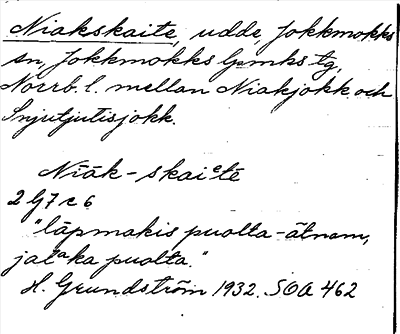 Niakskaite, udde, Jokkmokks
sn, Jokkmokks lpmks tg,
Norrb. l. mellan Niakjokk och
Snjutjutisjokk.
Nïāk-skaiᵉtē
2 G 7 c 6
"lāpmakis puolta-ätnam,
jalᵃka puolta."
H. Grundström 1932. SOA 462